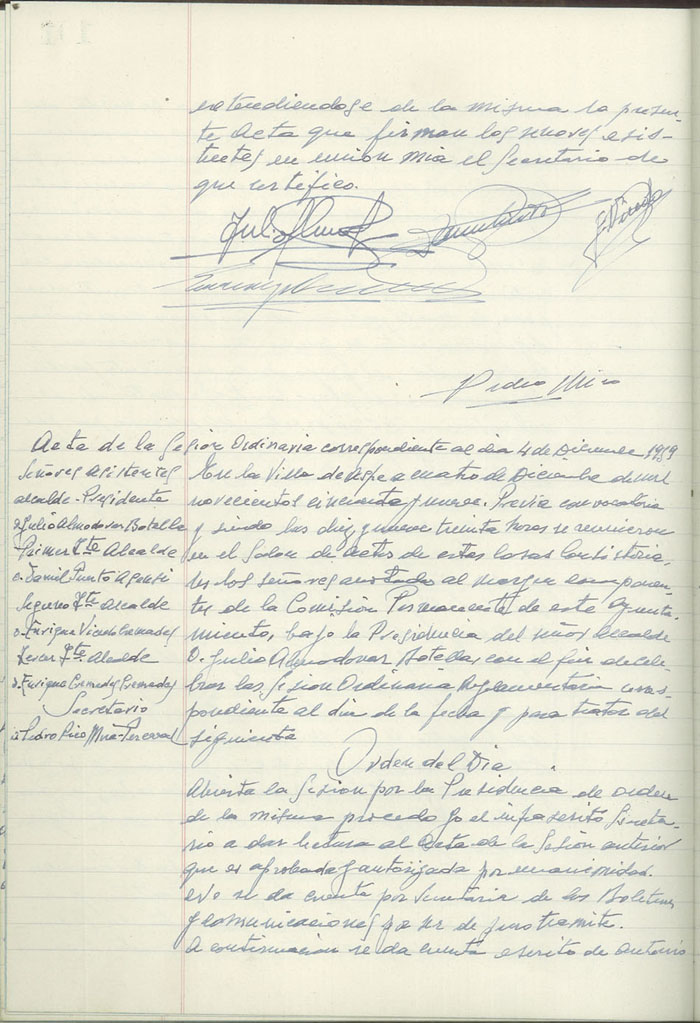 extendiendose de la misma la presen-
te Acta que firman los señores asis-
tentes en union mia el Secretario de
que certifico.
Pedro Miro
Acta de la Sesion Ordinaria correspondiente al dia 4 de Diciembre 1959
Señores Asistentes
Alcalde-Presidente
D. Julio Almodovar Botella
Primer Tte Alcalde
D. Daniel Punto
Segundo Tte Alcalde
D. Enrique Vicedo Cremades
Tercer Tte Alcalde
D. Enrique Cremades Cremades
Secretario
D. Pedro Pico Miro-Perceval
En la Villa de Aspe a cuatro de Diciembre de mil
novecientos cincuenta y nueve. Previa convocatoria
y siendo las diez y nueve treinta horas se reunieron
en el Salon de Actos de estas Casas Consistoria-
les los señores anotados al margen componen-
tes de la Comision Permanente de este Ayunta-
miento, bajo la Presidencia del señor Alcalde
D. Julio Almodovar Botella, con el fin de cele-
brar la Sesion Ordinaria Reglamentaria corres-
pondiente al dia de la fecha y para tratar del
siguiente
Orden del Dia
Abierta la Sesion por la Presidencia de orden
de la misma procedo yo el infrascrito Secreta-
rio a dar lectura al Acta de la Sesion anterior
que es aprobada y autorizada por unanimidad.
se da cuenta por Secretaria de los Boletines
y comunicaciones por ser de puro tramite.
A continuacion se da cuenta escrito de Antonio